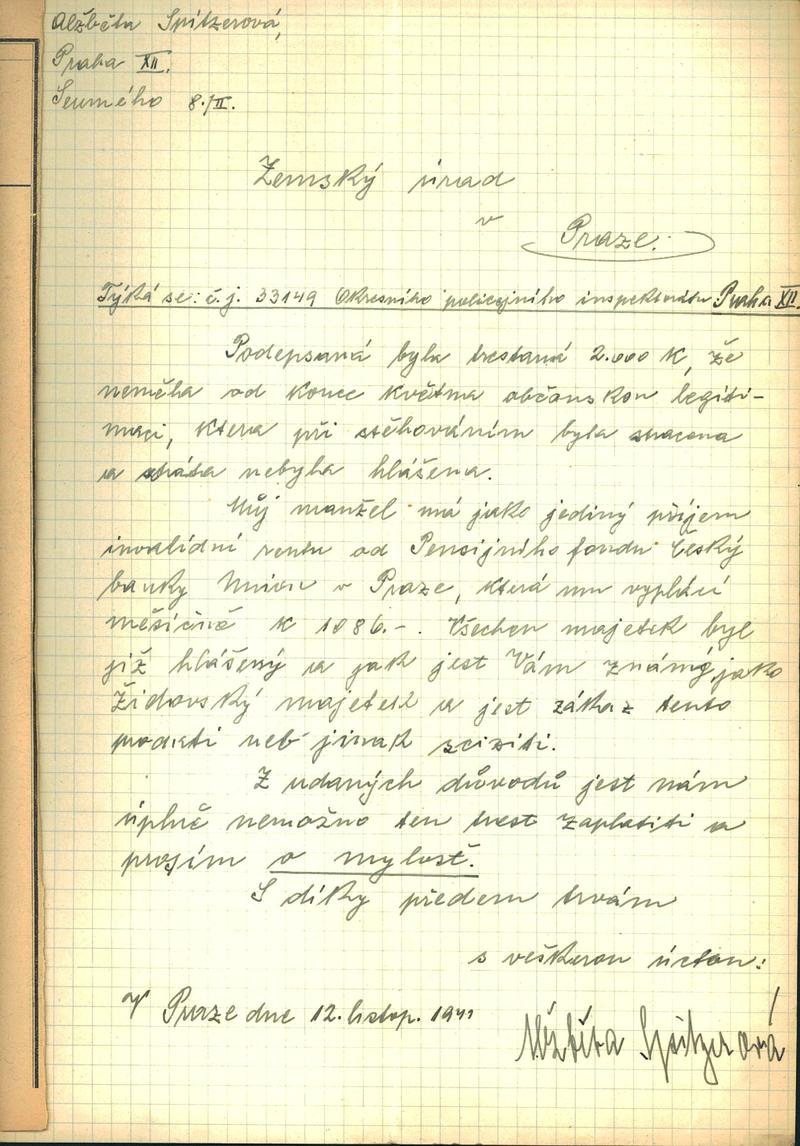 Alžběta Spitzerová,
Praha XII.
Šumého 8./II.
Zemský úřad
v
Praze.
Týká se: č.j. 33149 Okresního policejního inspektorátu Praha XII.
Podepsaná byla trestaná 2.000 K, že
neměla od konce května občanskou legiti-
maci, která při stěhováním byla ztracena
a ztráta nebyla hlášena.
Můj manžel má jako jediný příjem
invalidní rentu od Pensijního fondu Český
banky Union v Praze, která mu vyplácí
měsíčně K 1086.-. Všechen majetek byl
již hlášený a jak jest Vám známý, jako
Židovský majetek a jest zákaz tento
prodati neb jinak zciziti.
Z udaných důvodů jest nám
úplně nemožno ten trest zaplatiti a
prosím o mylost.
S díky předem trvám
s veškerou úctou:
V Praze dne 12. listop. 1941
Alžběta Spitzerová